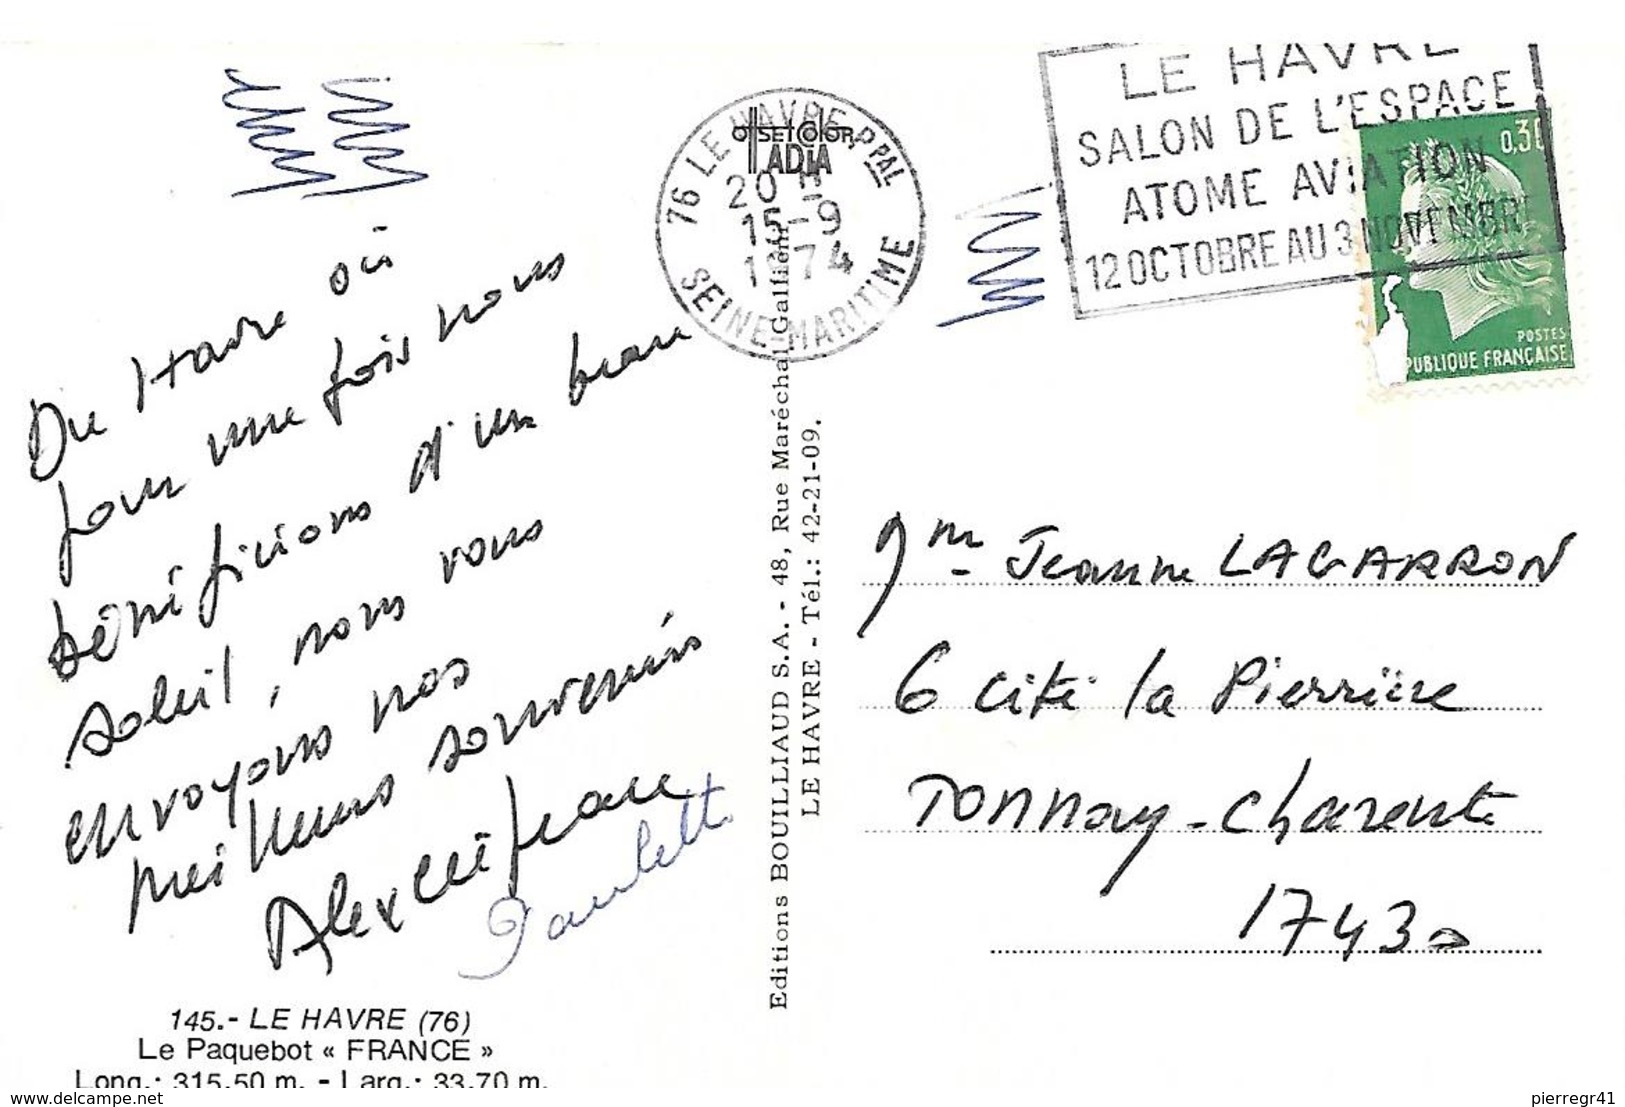 Du Havre où
pour une fois nous
bénéficions d'un beau
soleil, nous vous
envoyons nos
meilleurs souvenirs
Paulette
145.- LE HAVRE (76)
Le Paquebot « FRANCE »
Long.: 315,50 m. - Larg.: 33,70 m.
76 LE HAVRE PPAL
20 H
15-9
1974
SEINE-MARITIME
OffSETCOLOR
IADiA
Editions BOUILLIAUD S.A. - 48, Rue Maréchal-Galliéni
LE HAVRE - Tél.: 42-21-09.
LE HAVRE
SALON DE L'ESPACE
ATOME AVIATION
12 OCTOBRE AU 3 NOVEMBR
0,30
POSTES
PUBLIQUE FRANÇAISE
Jeanne LAGARRON
6 cité la Pierrière
TONNAY-Charente
17430
pierregr41
www.delcampe.net